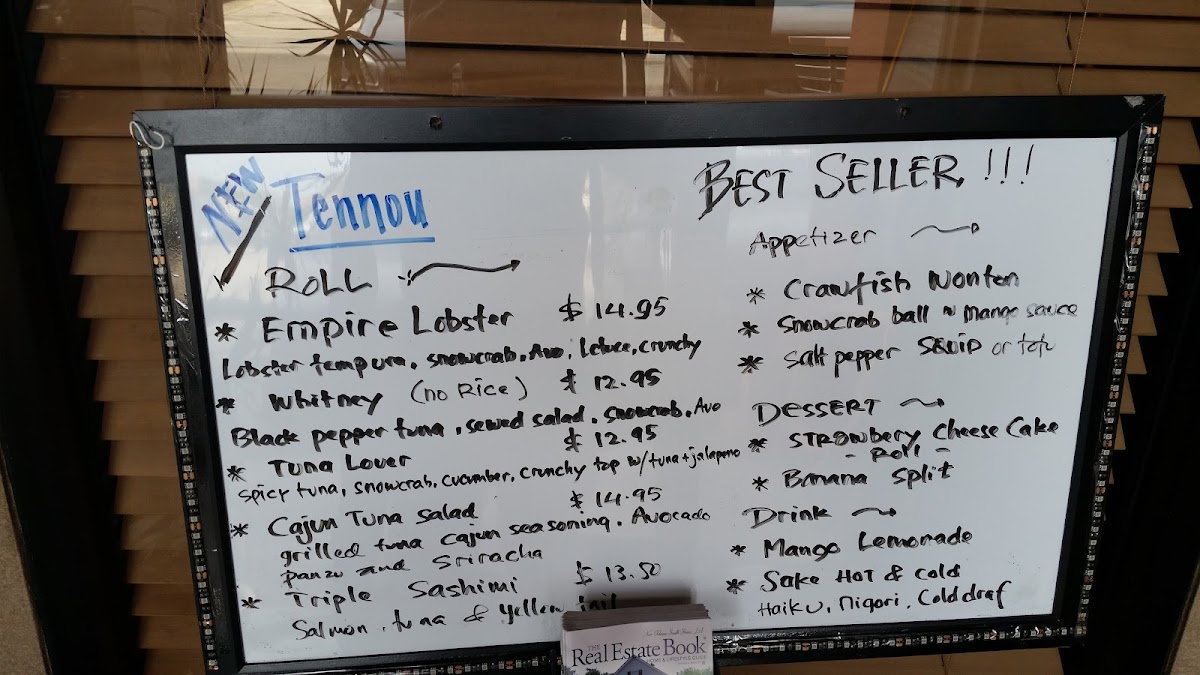 NEW
Tennou
ROLL
* Empire Lobster $ 14.95
Lobster tempura, snowcrab, Avo, letuce, crunchy
* Whitney (no Rice) $ 12.95
Black pepper tuna, sewed salad, snowcrab, Avo
* Tuna Lover $ 12.95
Spicy tuna, snowcrab, cucumber, crunchy top w/tuna+jalapeno
* Cajun Tuna Salad $ 14.95
grilled tuna cajun seasoning, Avocado
panzu and Sriracha
* Triple Sashimi $ 13.50
Salmon, tuna & yellow tail
BEST SELLER !!!
Appetizer
* Crawfish Wonton
* Snowcrab ball w mango sauce
* Salt pepper SQUID or tofu
DESSERT
* STROWbery Cheese Cake
- Roll -
* Banana Split
Drink
* Mango Lemonade
* Sake HOT & Cold
HAIKU, Nigori, Cold draf
THE
Real Estate Book
HOME & LIFESTYLE GUIDE